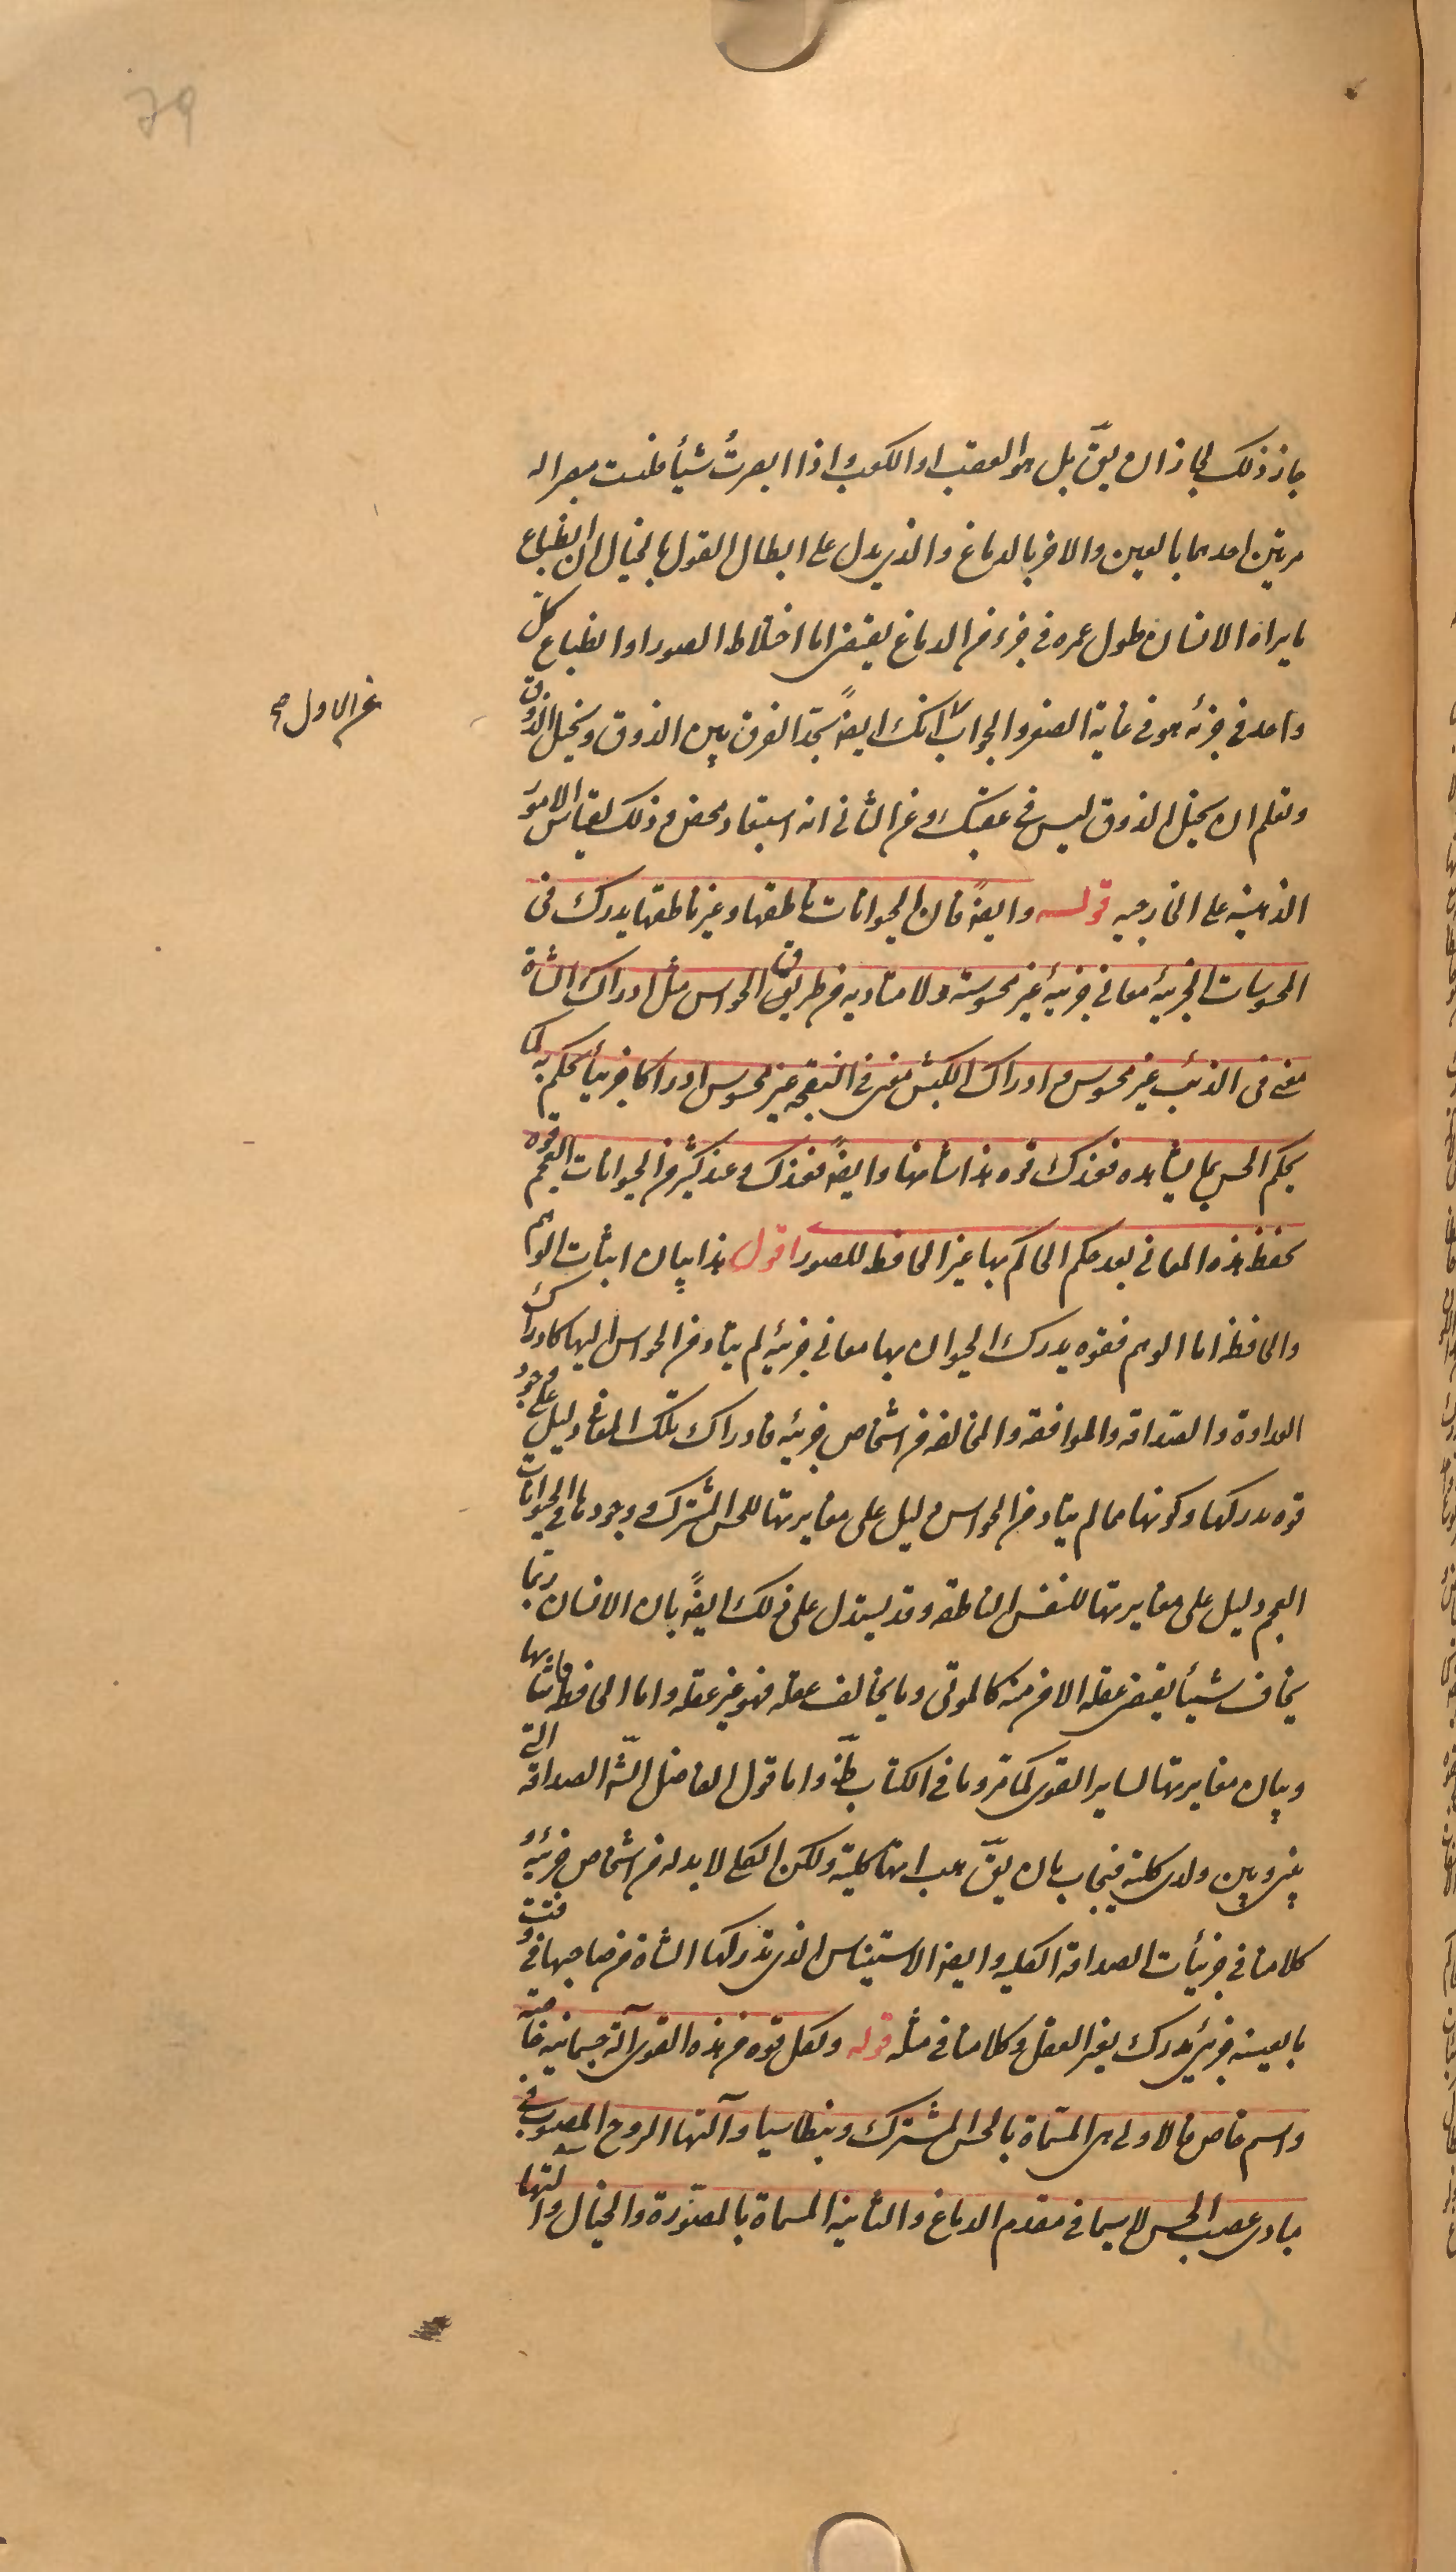 79
جاز ذلك لجاز ان يقّ بل هو العقب او الكعب و اذا ابصرتُ شيأ فلست مبصرا له
مرتين احدهما بالعين والاخر بالدماغ والذى يدل على ابطال القول بالخيال ان انطباع
ما يراه الانسان طول عمره فى جزء من الدماغ يقتضى اما اختلاط الصور او انطباع كلّ
واحد فى جزئه هو فى غاية الصغر والجواب انك ايضً تجد الفرق بين الذوق وتخيل الذوق
عن الاول صح
وتعلم ان تخيل الذوق ليس فى عقبك وعن الثانى انه استبعاد محض و ذلك لقياس الامور
الذهنية على الخارجيه قوله وايضً فان الحيوانات ناطقها وغير ناطقها يدرك فى
المحسوسات الجزئية معانى جزئيةً غير محسوسة ولا متاديه من طريق الحواس مثل ادراك الشاة
معنى فى الذئب غير محسوس و ادراك الكبش معنى فى النعجه غير محسوس ادراكا جزئيأ يحكم به كما
يحكم الحس بما يشاهده فعندك قوه هذا شانها وايضً فعندك وعند كثير من الحيوانات العجم قوه
تحفظ هذه المعانى بعد حكم الحاكم بها غير الحافظ للصور اقول هذا بيان اثبات الوهم
والحافظه اما الوهم فقوه يدرك الحيوان بها معانى جزئية لم يتاد من الحواس اليها كادراك
العداوة والصّداقه والموافقه والمخالفه من اشخاص جزئيه فادراك تلك المعانى دليل على وجود
قوه تدركها وكونها مما لم يتاد من الحواس دليل على مغايرتها للحس المشترك و وجودها فى الحيوانات
العجم دليل على مغايرتها للنفس الناطقه وقد يستدل على ذلك ايضً بان الانسان ربّما
يخاف شيأ يقتضى عقله الامن منه كالموتى وما يخالف عقله فهو غير عقله واما الحافظه فاثباتها
وبيان مغايرتها لساير القوى كما مرّ وما فى الكتاب ظّ واما قول الفاضل الشّ الصداقه التى
بينى وبين ولدى كلية فيجاب بان يقّ هب انها كلية ولكن الكلى لا بد له من اشخاص جزئيه و
كلامنا فى جزئيات الصداقه الكليه وايضً الاستيناس الذى تدركها الشاة من صاحبها فى وقت
بالعينه جزئى مدرك بغير العقل وكلامنا فى مثله قوله ولكل قوه من هذه القوى آلة جسمانيه خاصّة
واسم خاص فالاولى هى المسمّاة بالحس المشترك و بنطاسيا وآلتها الروح المصبوب فى
مبادى عصب الحس لا سيما فى مقدم الدماغ والثانية المسماة بالمصّورة والخيال وآلتها